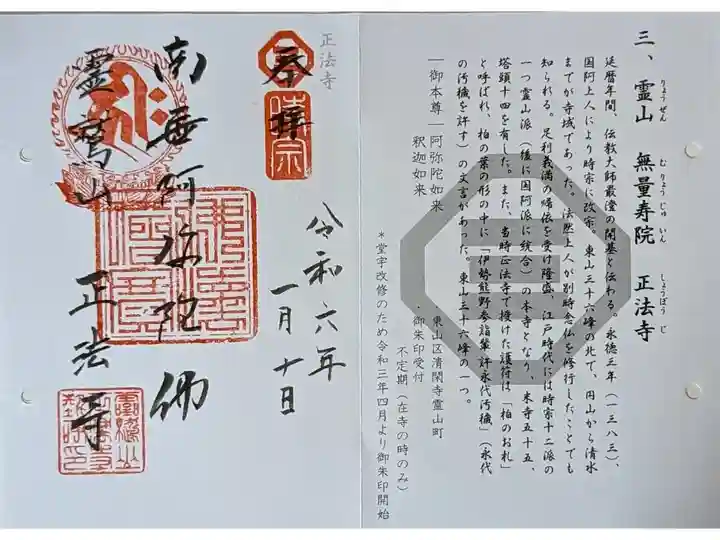 三、霊山 無量寿院 正法寺
りょうぜん むりょうじゅいん しょうぼうじ
延暦年間、伝教大師最澄の開基と伝わる。永徳三年（一三八三）、
国阿上人により時宗に改宗。東山三十六峰の北で、円山から清水
までが寺域であった。法然上人が別時念仏を修行したことでも
知られる。足利義満の帰依を受け隆盛、江戸時代には時宗十二派の
一つ霊山派（後に国阿派に統合）の本寺となり、末寺五十五、
塔頭十四を有した。また、当時正法寺で授けた護符は「柏のお札」
と呼ばれ、柏の葉の形の中に「伊勢熊野参詣輩許永代汚穢」（永代
の汚穢を許す）の文言があった。東山三十六峰の一つ。
―御本尊―阿弥陀如来
釈迦如来
東山区清閑寺霊山町
・御朱印受付
不定期（在寺の時のみ）
＊堂宇改修のため令和三年四月より御朱印開始
正法寺
奉拝
時宗
令和六年
一月十日
南無阿弥陀佛
霊鷲山 正法寺